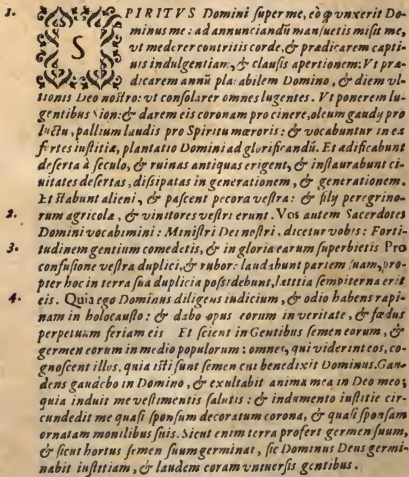 1. SPIRITVS Domini ſuper me, eò q̃ vnxerit Do-
minus me: ad annunciandũ manſuetis miſit me,
vt mederer contritis corde, & prædicarem capti-
uis indulgentiam, & clauſis apertionem: Vt præ-
dicarem annũ placabilem Domino, & diem vl-
tionis Deo noſtro: vt conſolarer omnes lugentes. Vt ponerem lu-
gentibus Sion: & darem eis coronam pro cinere, oleum gaudij pro
luctu, pallium laudis pro Spiritu mœroris: & vocabuntur in ea
fortes iuſtitiæ, plantatio Domini ad glorificandũ. Et ædificabunt
deſerta à ſeculo, & ruinas antiquas erigent, & inſtaurabunt ci-
uitates deſertas, diſsipatas in generationem, & generationem.
Et ſtabunt alieni, & paſcent pecora veſtra: & filij peregrino-
2. rum agricolæ, & vinitores veſtri erunt. Vos autem Sacerdotes
Domini vocabimini: Miniſtri Dei noſtri, dicetur vobis: Forti-
3. tudinem gentium comedetis, & in gloria earum ſuperbietis Pro
confuſione veſtra duplici, & rubor: laudabunt partem ſuam, pro-
pter hoc in terra ſua duplicia poſsidebunt, lætitia ſempiterna erit
4. eis. Quia ego Dominus diligens iudicium, & odio habens rapi-
nam in holocauſto: & dabo opus eorum in veritate, & fœdus
perpetuum feriam eis Et ſcient in Gentibus ſemen eorum, &
germen eorum in medio populorum: omnes, qui viderint eos, co-
gnoſcent illos, quia iſti ſunt ſemen cui benedixit Dominus. Gau-
dens gaudebo in Domino, & exultabit anima mea in Deo meo;
quia induit me veſtimentis ſalutis: & indumento iuſtitiæ cir-
cundedit me quaſi ſponſum decoratum corona, & quaſi ſponſam
ornatam monilibus ſuis. Sicut enim terra profert germen ſuum,
& ſicut hortus ſemen ſuum germinat, ſic Dominus Deus germi-
nabit iuſtitiam, & laudem coram vniuerſis gentibus.